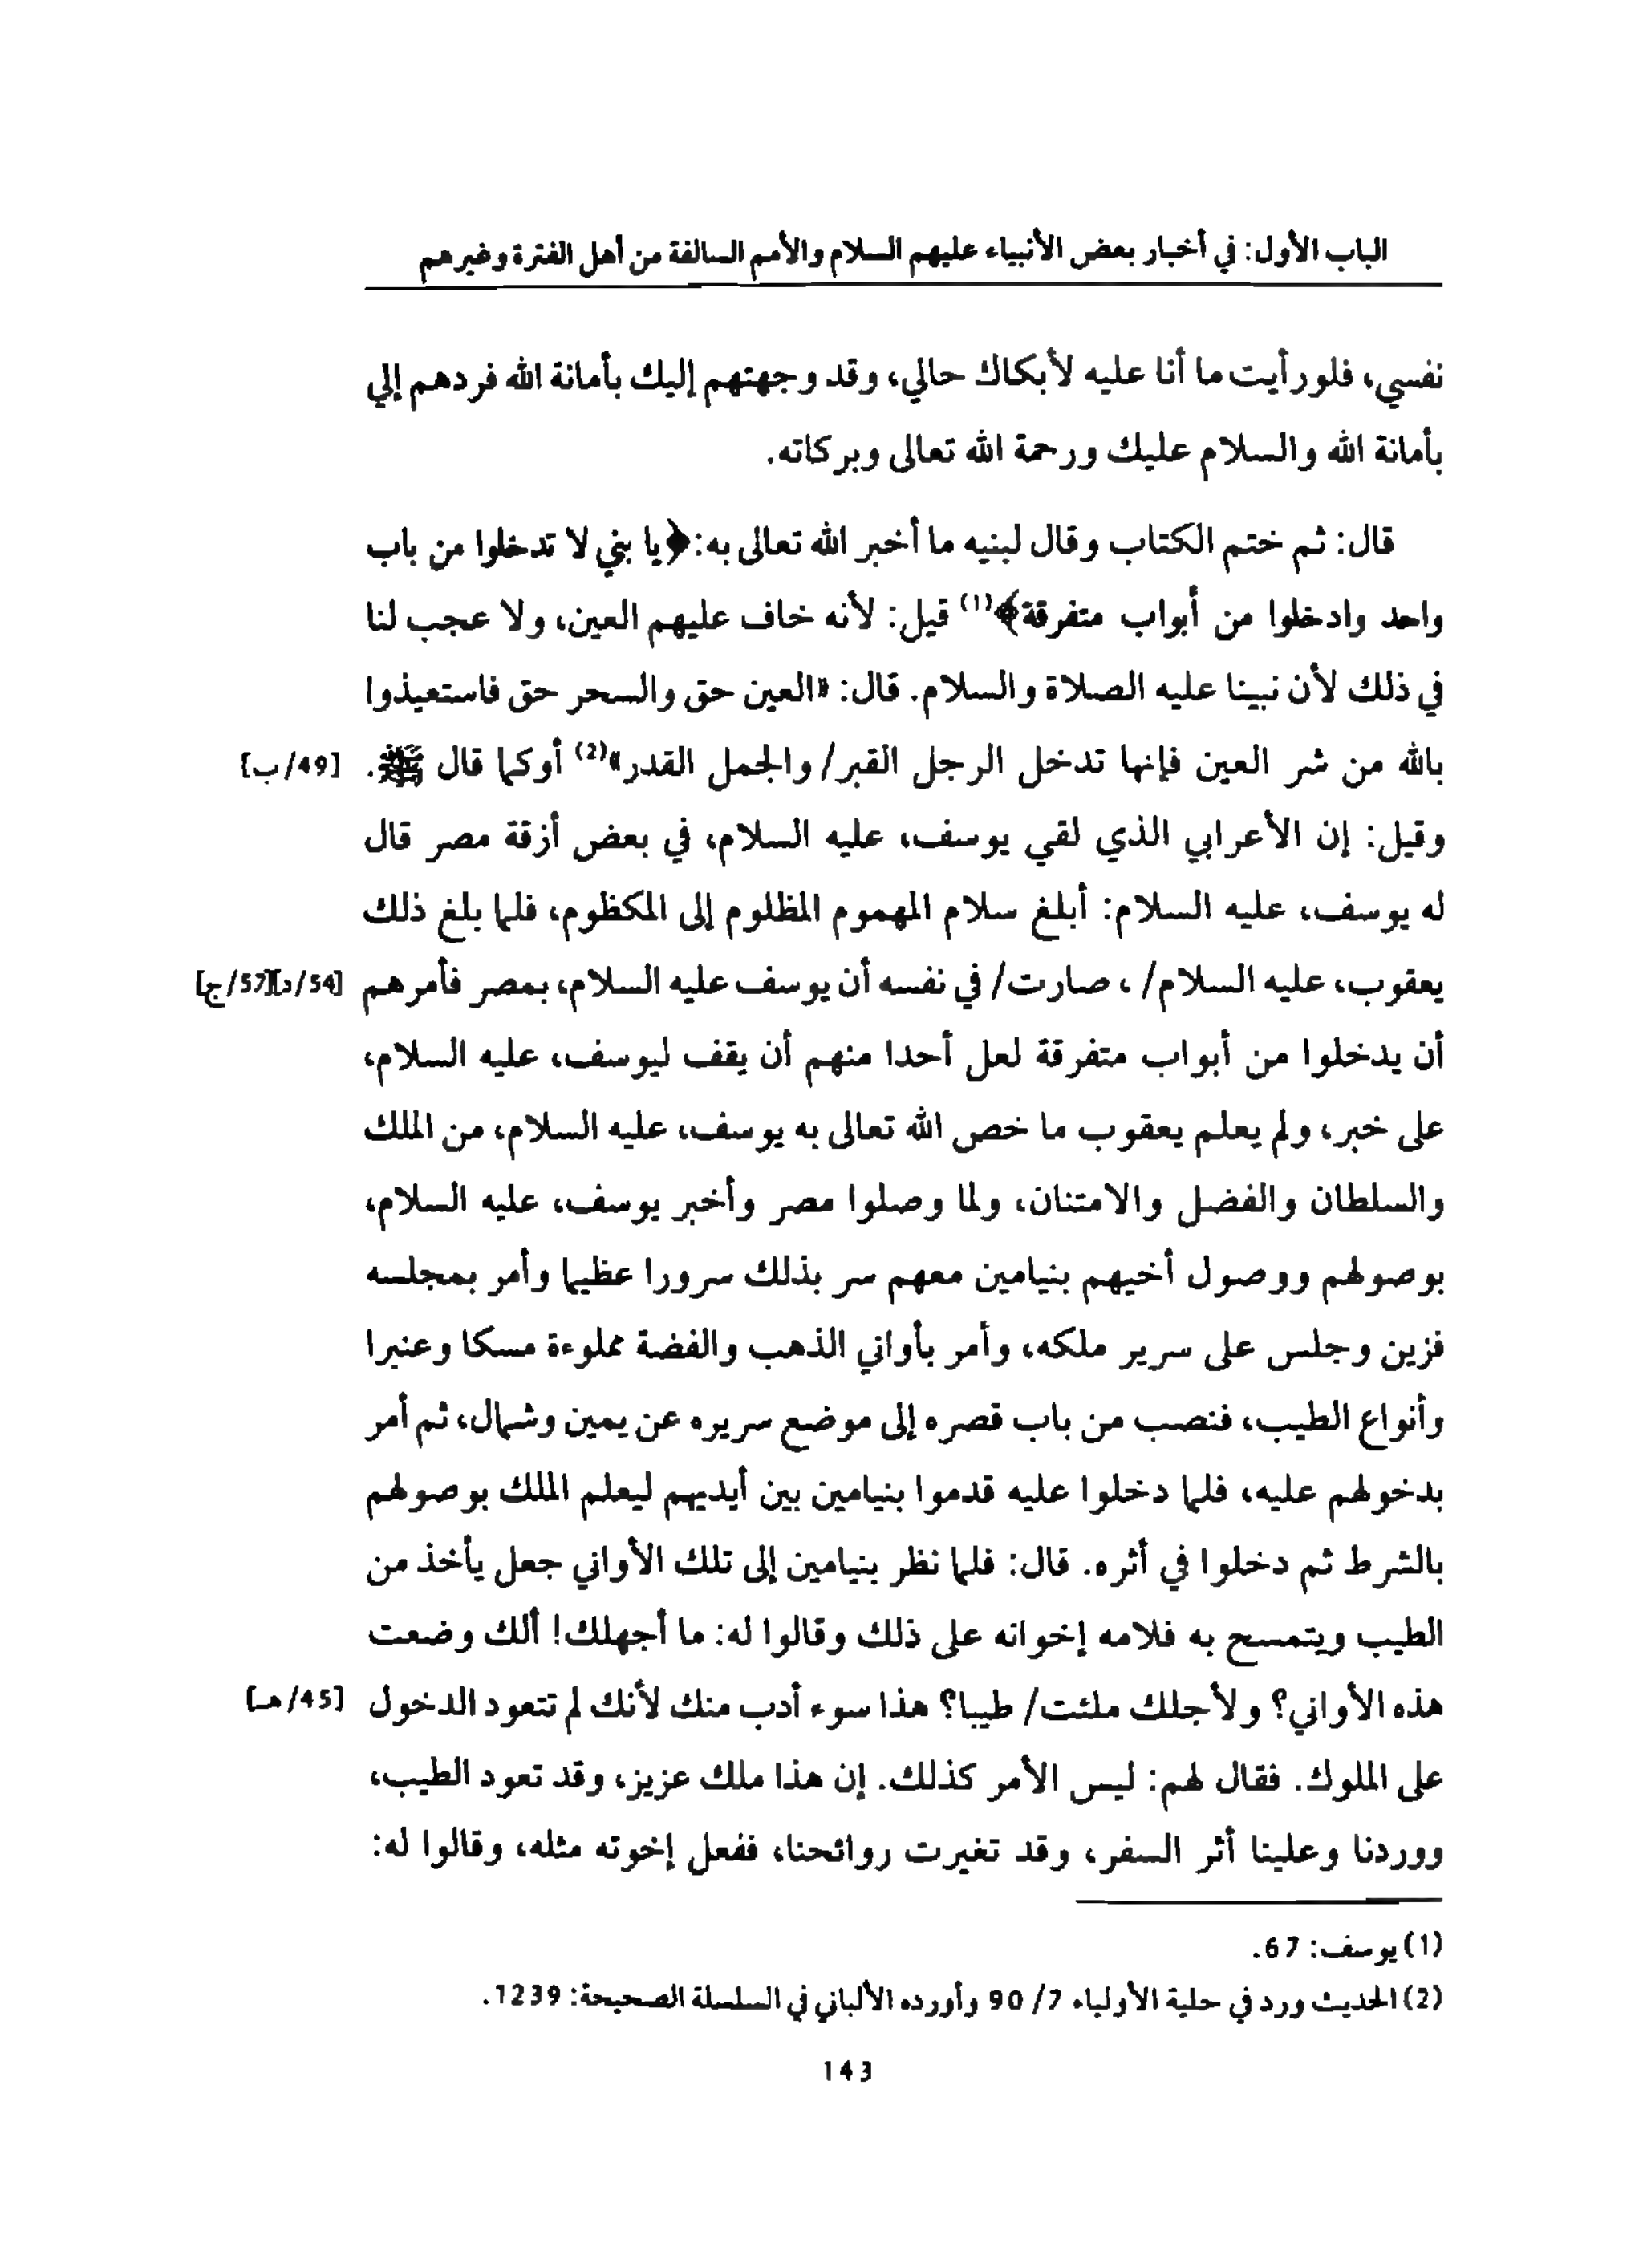 الباب الأول: في أخبار بعض الأنبياء عليهم السلام والأمم السالفة من أهل الفترة وغيرهم
نفسي، فلو رأيت ما أنا عليه لأبكاك حالي، وقد وجهتهم إليك بأمانة الله فردهم إلي
بأمانة الله والسلام عليك ورحمة الله تعالى وبركاته.
قال: ثم ختم الكتاب وقال لبنيه ما أخبر الله تعالى به: ﴿يا بني لا تدخلوا من باب
واحد وادخلوا من أبواب متفرقة﴾(1) قيل: لأنه خاف عليهم العين، ولا عجب لنا
في ذلك لأن نبينا عليه الصلاة والسلام. قال: «العين حق والسحر حق فاستعيذوا
بالله من شر العين فإنها تدخل الرجل القبر/ والجمل القدر»(2) أوكما قال ﷺ. [49/ب]
وقيل: إن الأعرابي الذي لقي يوسف، عليه السلام، في بعض أزقة مصر قال
له يوسف، عليه السلام: أبلغ سلام المهموم المظلوم إلى المكظوم، فلما بلغ ذلك
يعقوب، عليه السلام/ ، صارت/ في نفسه أن يوسف عليه السلام، بمصر فأمرهم [54/د][57/ج]
أن يدخلوا من أبواب متفرقة لعل أحدا منهم أن يقف ليوسف، عليه السلام،
على خبر، ولم يعلم يعقوب ما خص الله تعالى به يوسف، عليه السلام، من الملك
والسلطان والفضل والامتنان، ولما وصلوا مصر وأخبر يوسف، عليه السلام،
بوصولهم ووصول أخيهم بنيامين معهم سر بذلك سرورا عظيما وأمر بمجلسه
فزين وجلس على سرير ملكه، وأمر بأواني الذهب والفضة مملوءة مسكا وعنبرا
وأنواع الطيب، فنصب من باب قصره إلى موضع سريره عن يمين وشمال، ثم أمر
بدخولهم عليه، فلما دخلوا عليه قدموا بنيامين بين أيديهم ليعلم الملك بوصولهم
بالشرط ثم دخلوا في أثره. قال: فلما نظر بنيامين إلى تلك الأواني جعل يأخذ من
الطيب ويتمسح به فلامه إخوانه على ذلك وقالوا له: ما أجهلك! ألك وضعت
هذه الأواني؟ ولأجلك ملئت/ طيبا؟ هذا سوء أدب منك لأنك لم تتعود الدخول [45/هـ]
على الملوك. فقال لهم: ليس الأمر كذلك. إن هذا ملك عزيز، وقد تعود الطيب،
ووردنا وعلينا أثر السفر، وقد تغيرت روائحنا، ففعل إخوته مثله، وقالوا له:
(1) يوسف: 67.
(2) الحديث ورد في حلية الأولياء 7/ 90 وأورده الألباني في السلسلة الصحيحة: 1239.
143